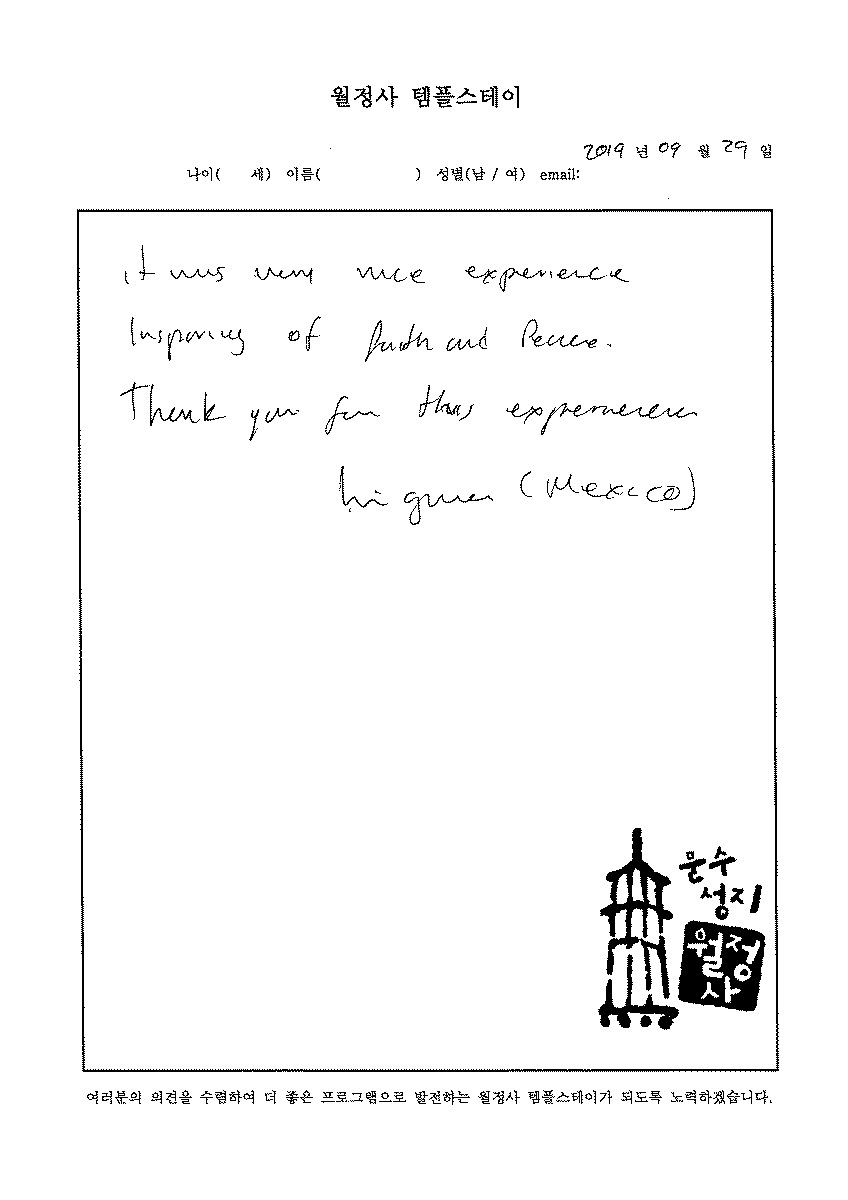 월정사 템플스테이
2019 년 09 월 29 일
나이( 세) 이름( ) 성별(남 / 여) email:
it was very nice experience
Inspiring of faith and Peace.
Thank you for this
(Mexico)
문수
성지
월정
사
여러분의 의견을 수렴하여 더 좋은 프로그램으로 발전하는 월정사 템플스테이가 되도록 노력하겠습니다.